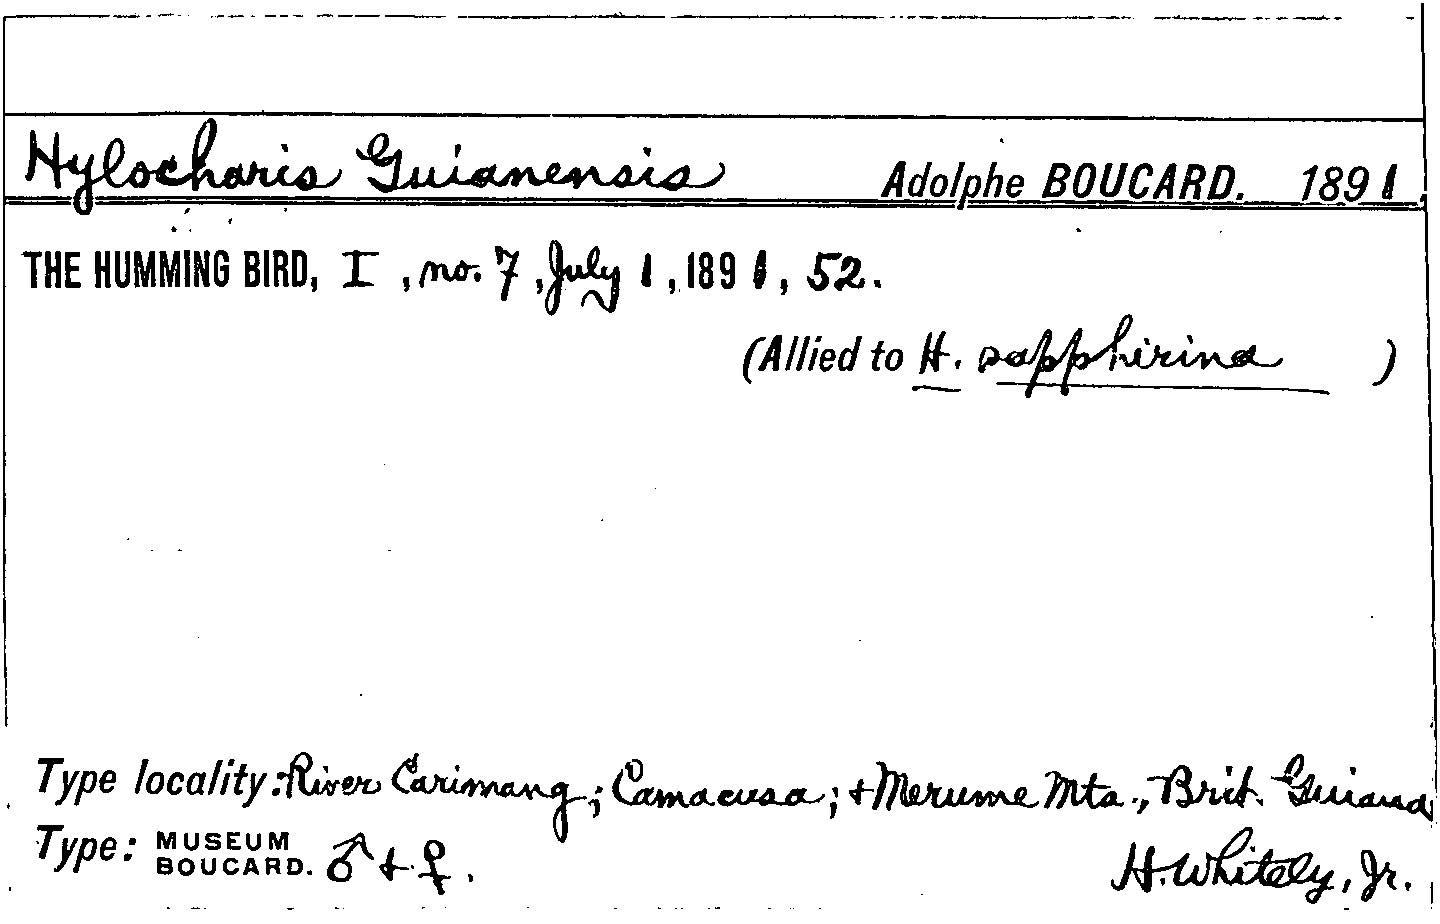 Hylocharis Guianensis Adolphe BOUCARD. 1891.
THE HUMMING BIRD, I, no. 7, July 1, 1891, 52.
(Allied to H. sapphirina )
Type locality: River Carimang; Camacusa; + Merume Mts., Brit. Guiana
Type: MUSEUM BOUCARD. ♂ + ♀. H. Whitely, Jr.